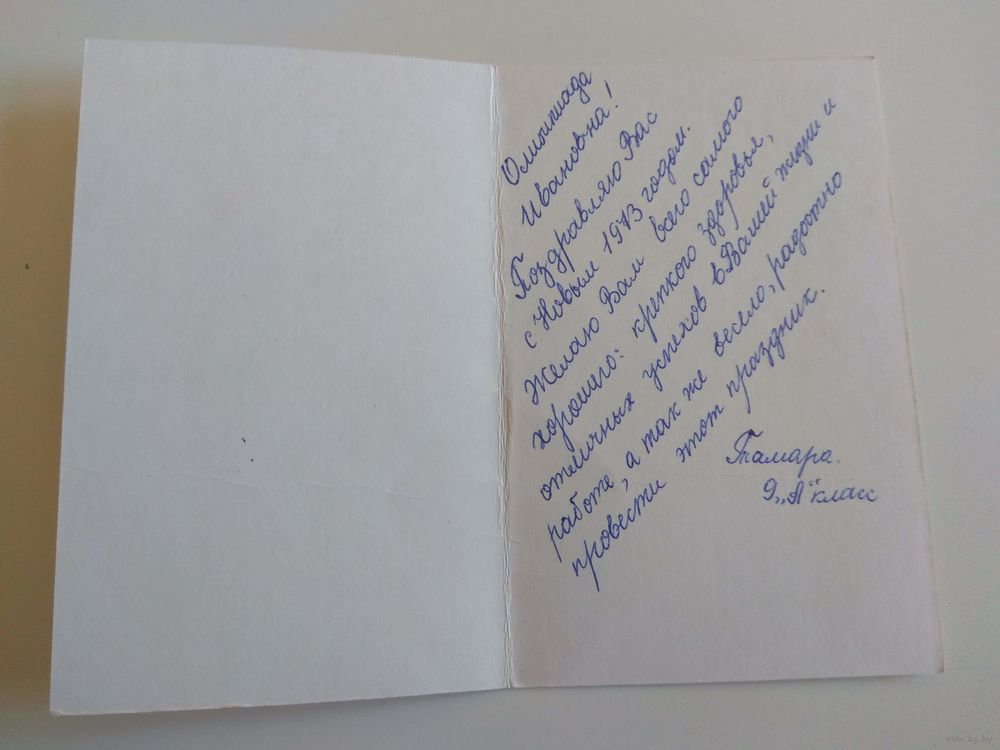 Олимпиада
Ивановна!
Поздравляю Вас
с Новым 1973 годом.
Желаю Вам всего самого
хорошего: крепкого здоровья,
отличных успехов в Вашей жизни и
работе, а так же весело, радостно
провести этот праздник.
Тамара.
9 „А“ класс
www.ay.by